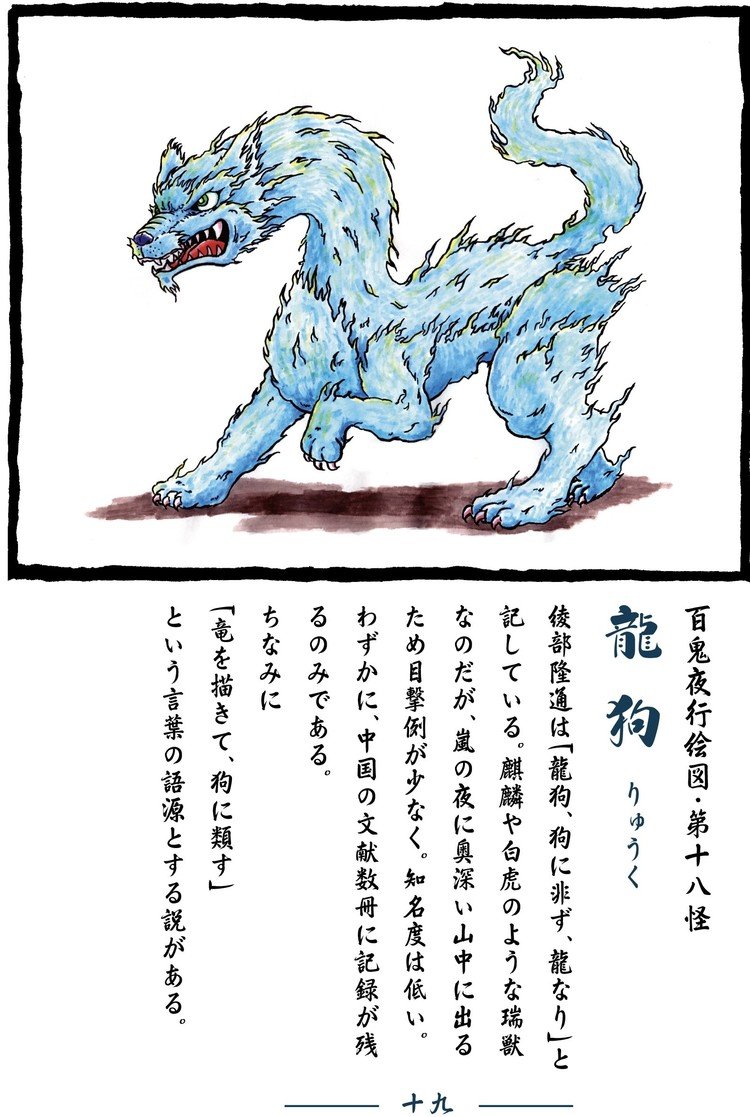 百鬼夜行絵図・第十八怪
龍狗 りゅうく
綾部隆通は「龍狗、狗に非ず、龍なり」と
記している。麒麟や白虎のような瑞獣
なのだが、嵐の夜に奥深い山中に出る
ため目撃例が少なく。知名度は低い。
わずかに、中国の文献数冊に記録が残
るのみである。
ちなみに
「竜を描きて、狗に類す」
という言葉の語源とする説がある。
十九